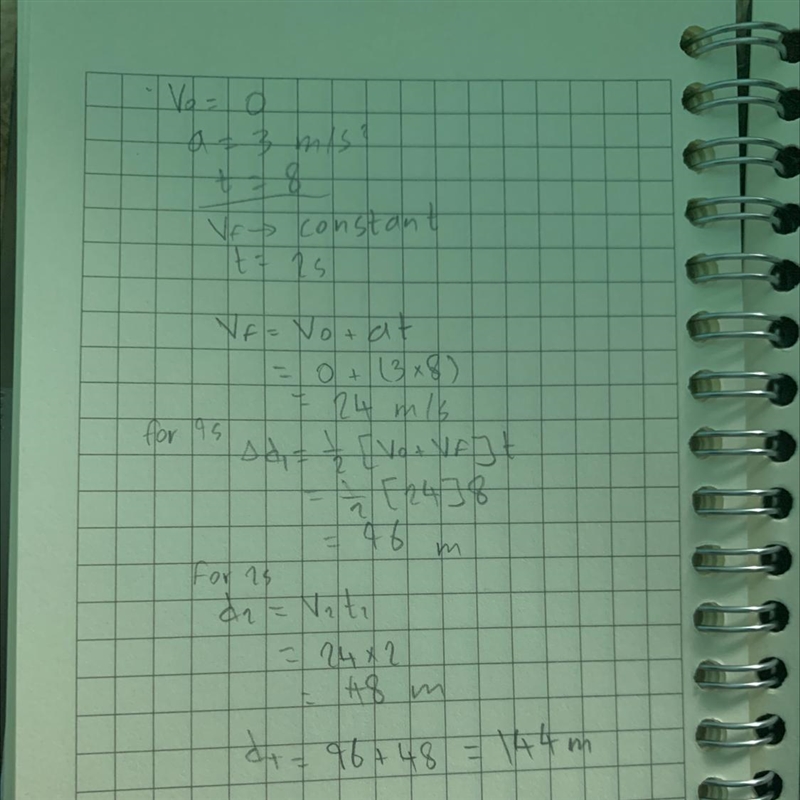 V0 = 0
a = 3 m/s²
t = 8
Vf → constant
t = 2s
Vf = V0 + at
= 0 + (3×8)
= 24 m/s
for 9s
Δd1 = 1/2 [V0 + Vf] t
= 1/2 [24] 8
= 96 m
For 2s
d2 = V2 t2
= 24 × 2
= 48 m
dt = 96 + 48 = 144 m